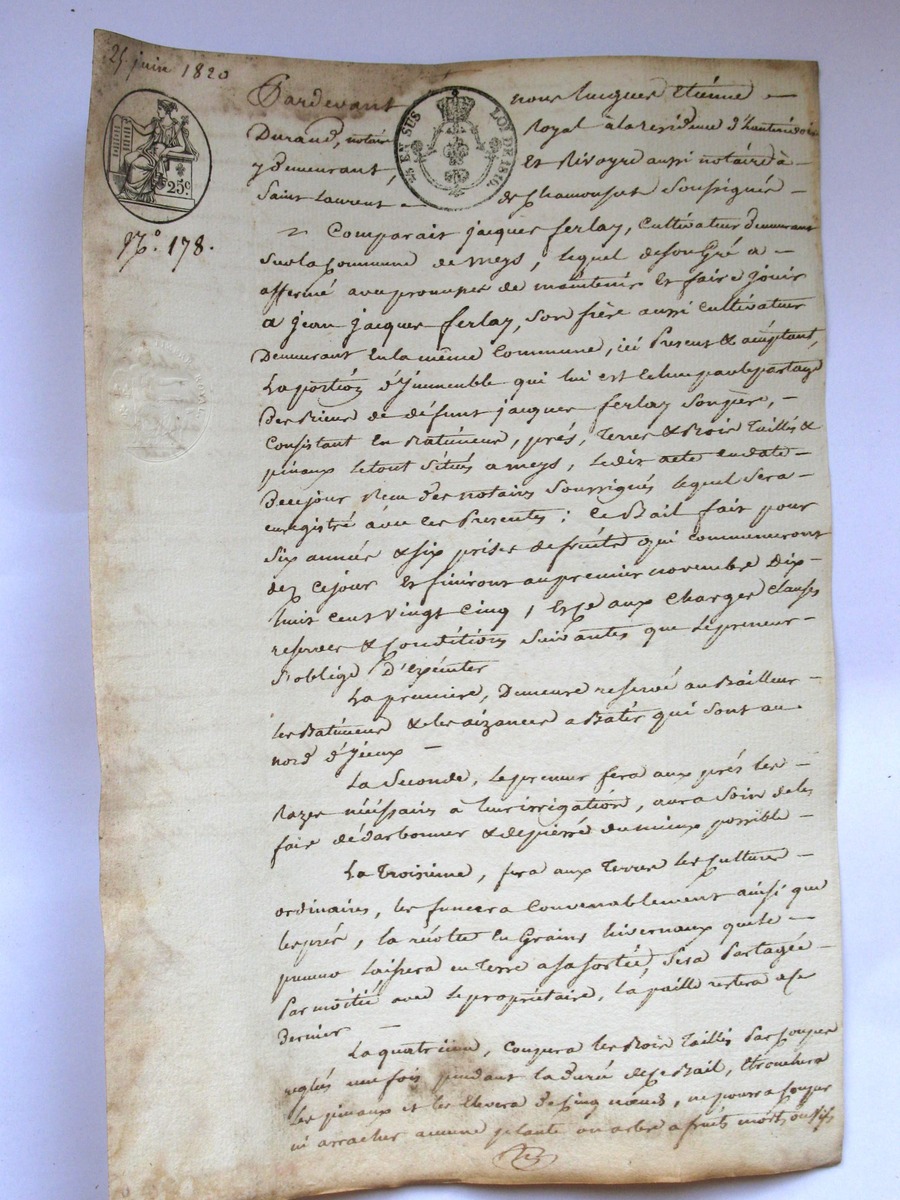 25 juin 1820
25 EN SUS
LOI DE 1816.
25c
N.o 178.
Pardevant nous Jacques Etienne
Durand, notaire Royal à la residence d'hauterivoire
y demeurant, Et Rivoyre aussi notaire à
Saint Laurent de Chamousset Soussignés
Comparait jacques ferlay, Cultivateur demeurant
Sur la Commune de meys, lequel de son Gré a
affermé avec promesse de maintenir Et faire jouir
a jean jacques ferlay, son frère aussi Cultivateur
Demeurant En la même Commune, ici Present & acceptant,
La portion d'Jmmeuble qui lui est Echue par le partage
Des Biens de défunt jacques ferlay Son père,
Consistant En Batiments, prés, Terres & Bois Taillés &
pinaux Le tout Situés a meys, Le dit acte en date
De ce jour Recu des notaires Soussignés lequel Sera
enregistré avec Ces Presentes ; Ce Bail fait pour
Six années & Six prises de fruits qui commenceront
dez Ce jour Et finiront au premier novembre Dix
huit Cent Vingt Cinq, aux Charges Clauses
reserves & Conditions Suivantes que Le preneur
S'oblige D'Exécuter
La première, Demeure reservé au Bailleur
les Batiments & les aizances a Batir qui sont au
nord d'Jceux
La Seconde, Le preneur fera aux prés les
Razes nécessaires à leur irrigation, aura Soin de les
faire dédarbonner & depierré du mieux possible
La Troisieme, fera aux Terres les Cultures
ordinaires, les fumera Convenablement ainsi que
les prés, la récolte En Grains hivernaux que le
preneur Laissera en Terre a Sa Sortie, Sera Partagée
Par moitié avec Le propriétaire, La paille restera a ce
Dernier
La quatrieme, Coupera les Bois Taillés Par Coupes
reglés une fois pendant la durée de Ce Bail,
Les pinaux et les Elevera De Cinq nœuds, ne pourra Couper
ni arracher aucune plante ou arbre a fruits morts ou vifs